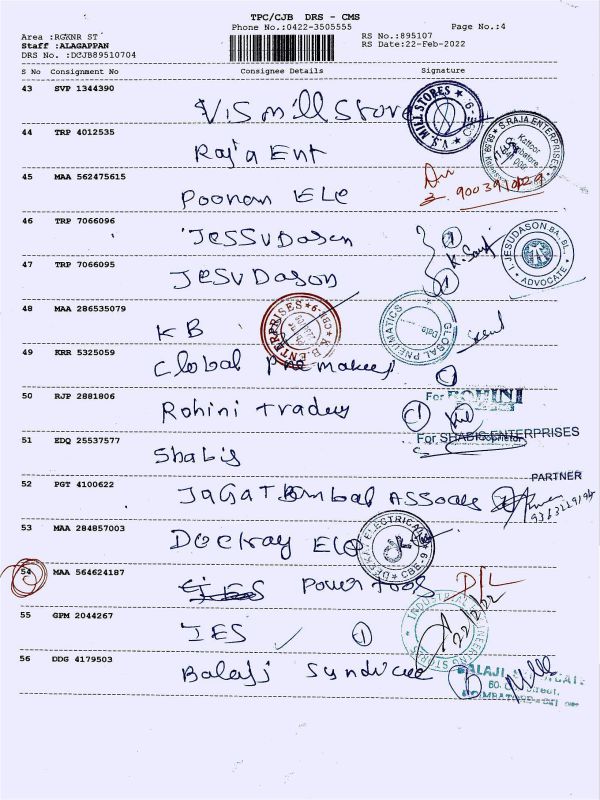 TPC/CJB DRS - CMS
Phone No.:0422-3505555
Page No.:4
Area :RGKNR ST
RS No.:895107
Staff :ALAGAPPAN
RS Date:22-Feb-2022
DRS No. :DCJB89510704
S No Consignment No Consignee Details Signature
43 SVP 1344390
V.S Mill Store
V.S. MILL STORES
44 TRP 4012535
Raja Ent
S.RAJA ENTERPRISES
Kattoor
45 MAA 562475615
Poonam ELe
46 TRP 7066096
JESSUDasen
1
K.
I. JESUDASON BA, BL,
ADVOCATE
47 TRP 7066095
JESUDason
1
48 MAA 286535079
KB
K.B. ENTERPRISES
CBE-9
GLOBAL PNEUMATICS
Date
49 KRR 5325059
Global
1
50 RJP 2881806
Rohini traders
1
For ROHINI
51 EDQ 25537577
Shabis
For SHABIS ENTERPRISES
PARTNER
52 PGT 4100622
53 MAA 284857003
Deekay Ele
ELECTRICALS
CBE 6
54 MAA 564624187
Power tools
D/L
55 GPM 2044267
JES
1
22/2/22
INDUSTRIAL ENGINEERING STORES
56 DDG 4179503
Balaji Syndicate
BALAJI